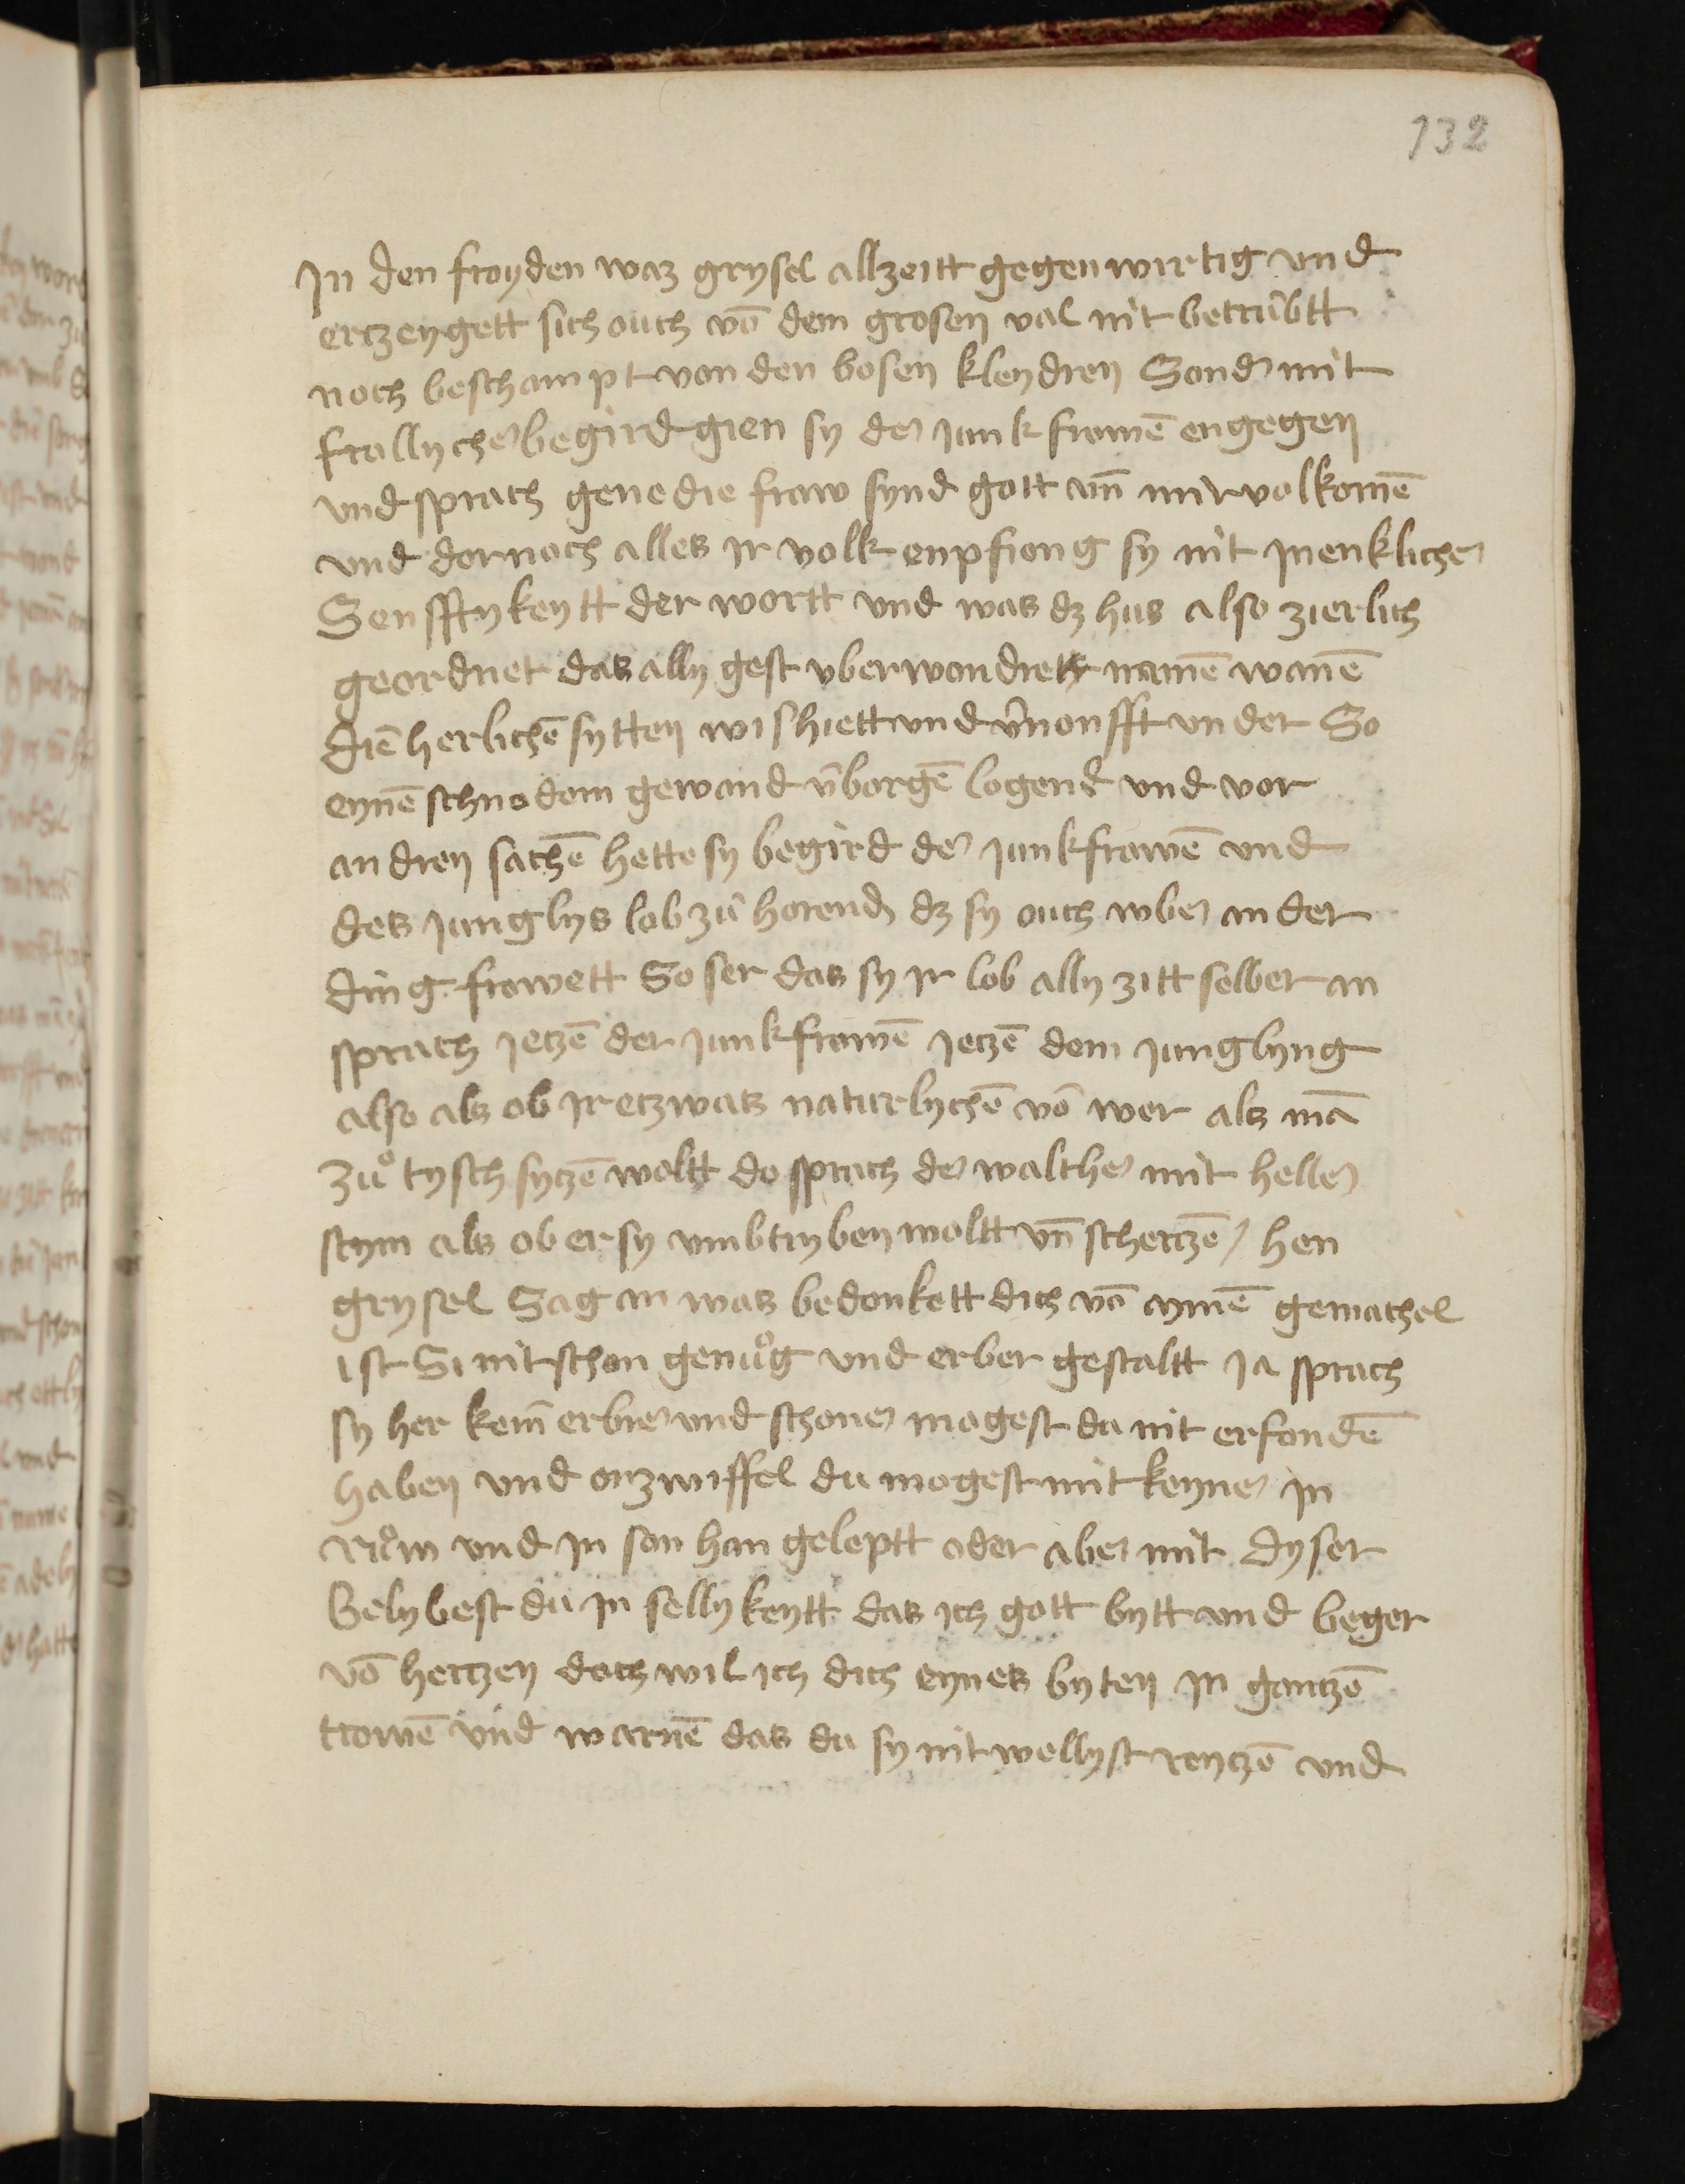 132
In den froyden waz grysel allzeitt gegenwirtig vnd
ertzeygett sich ouch vō dem grosen val nit betrübtt
noch beschampt von den bosen kleydren Sond' mit
frollycher begird gien sy der junkfrowē engegen
vnd sprach genedie frow synd gott vn̄ mir volkomē
vnd dornoch alles jr volk enpfiong sy mit menklicher
Senfftykeytt der wortt vnd was dz hus also zierlich
geordnet das ally gest vberwondrett namē wanē
diē herlichē sytten wishiett vnd v̄nonfft vnder So
eynē schnodem gewand v̄borgē logend vnd vor
andren sachē hette sy begird der junkfrowē vnd
des junglys lob zü horend dz sy ouch vber ander
ding frowett So ser das sy jr lob ally zitt selber an
sprach jetzē der junkfrowē jetzē dem junglyng
also als ob jr etzwas naturlychē vō wer als mā
zuͦ tysch sytzē woltt do sprach der walther mit heller
stym als ob er sy vmbtryben woltt vn̄ schertzē / hen
grysel Sag an was bedonkett dich vō mynē gemachel
ist Si nit schon genuͦg vnd erber gestaltt ja sprach
sy her kein̄ erbrer vnd schoner mogest du nit erfondē
haben vnd onzwiffel du mogest mit keyner in
ruͦw vnd jn son han geleptt oder aber mit dyser
Belybest du jn sellykeytt das ich gott bytt vnd beger
vō hertzen doch wil ich dich eynes byten jn gantzē
trowē vnd warnē das du sy nit wellyst reytzē vnd